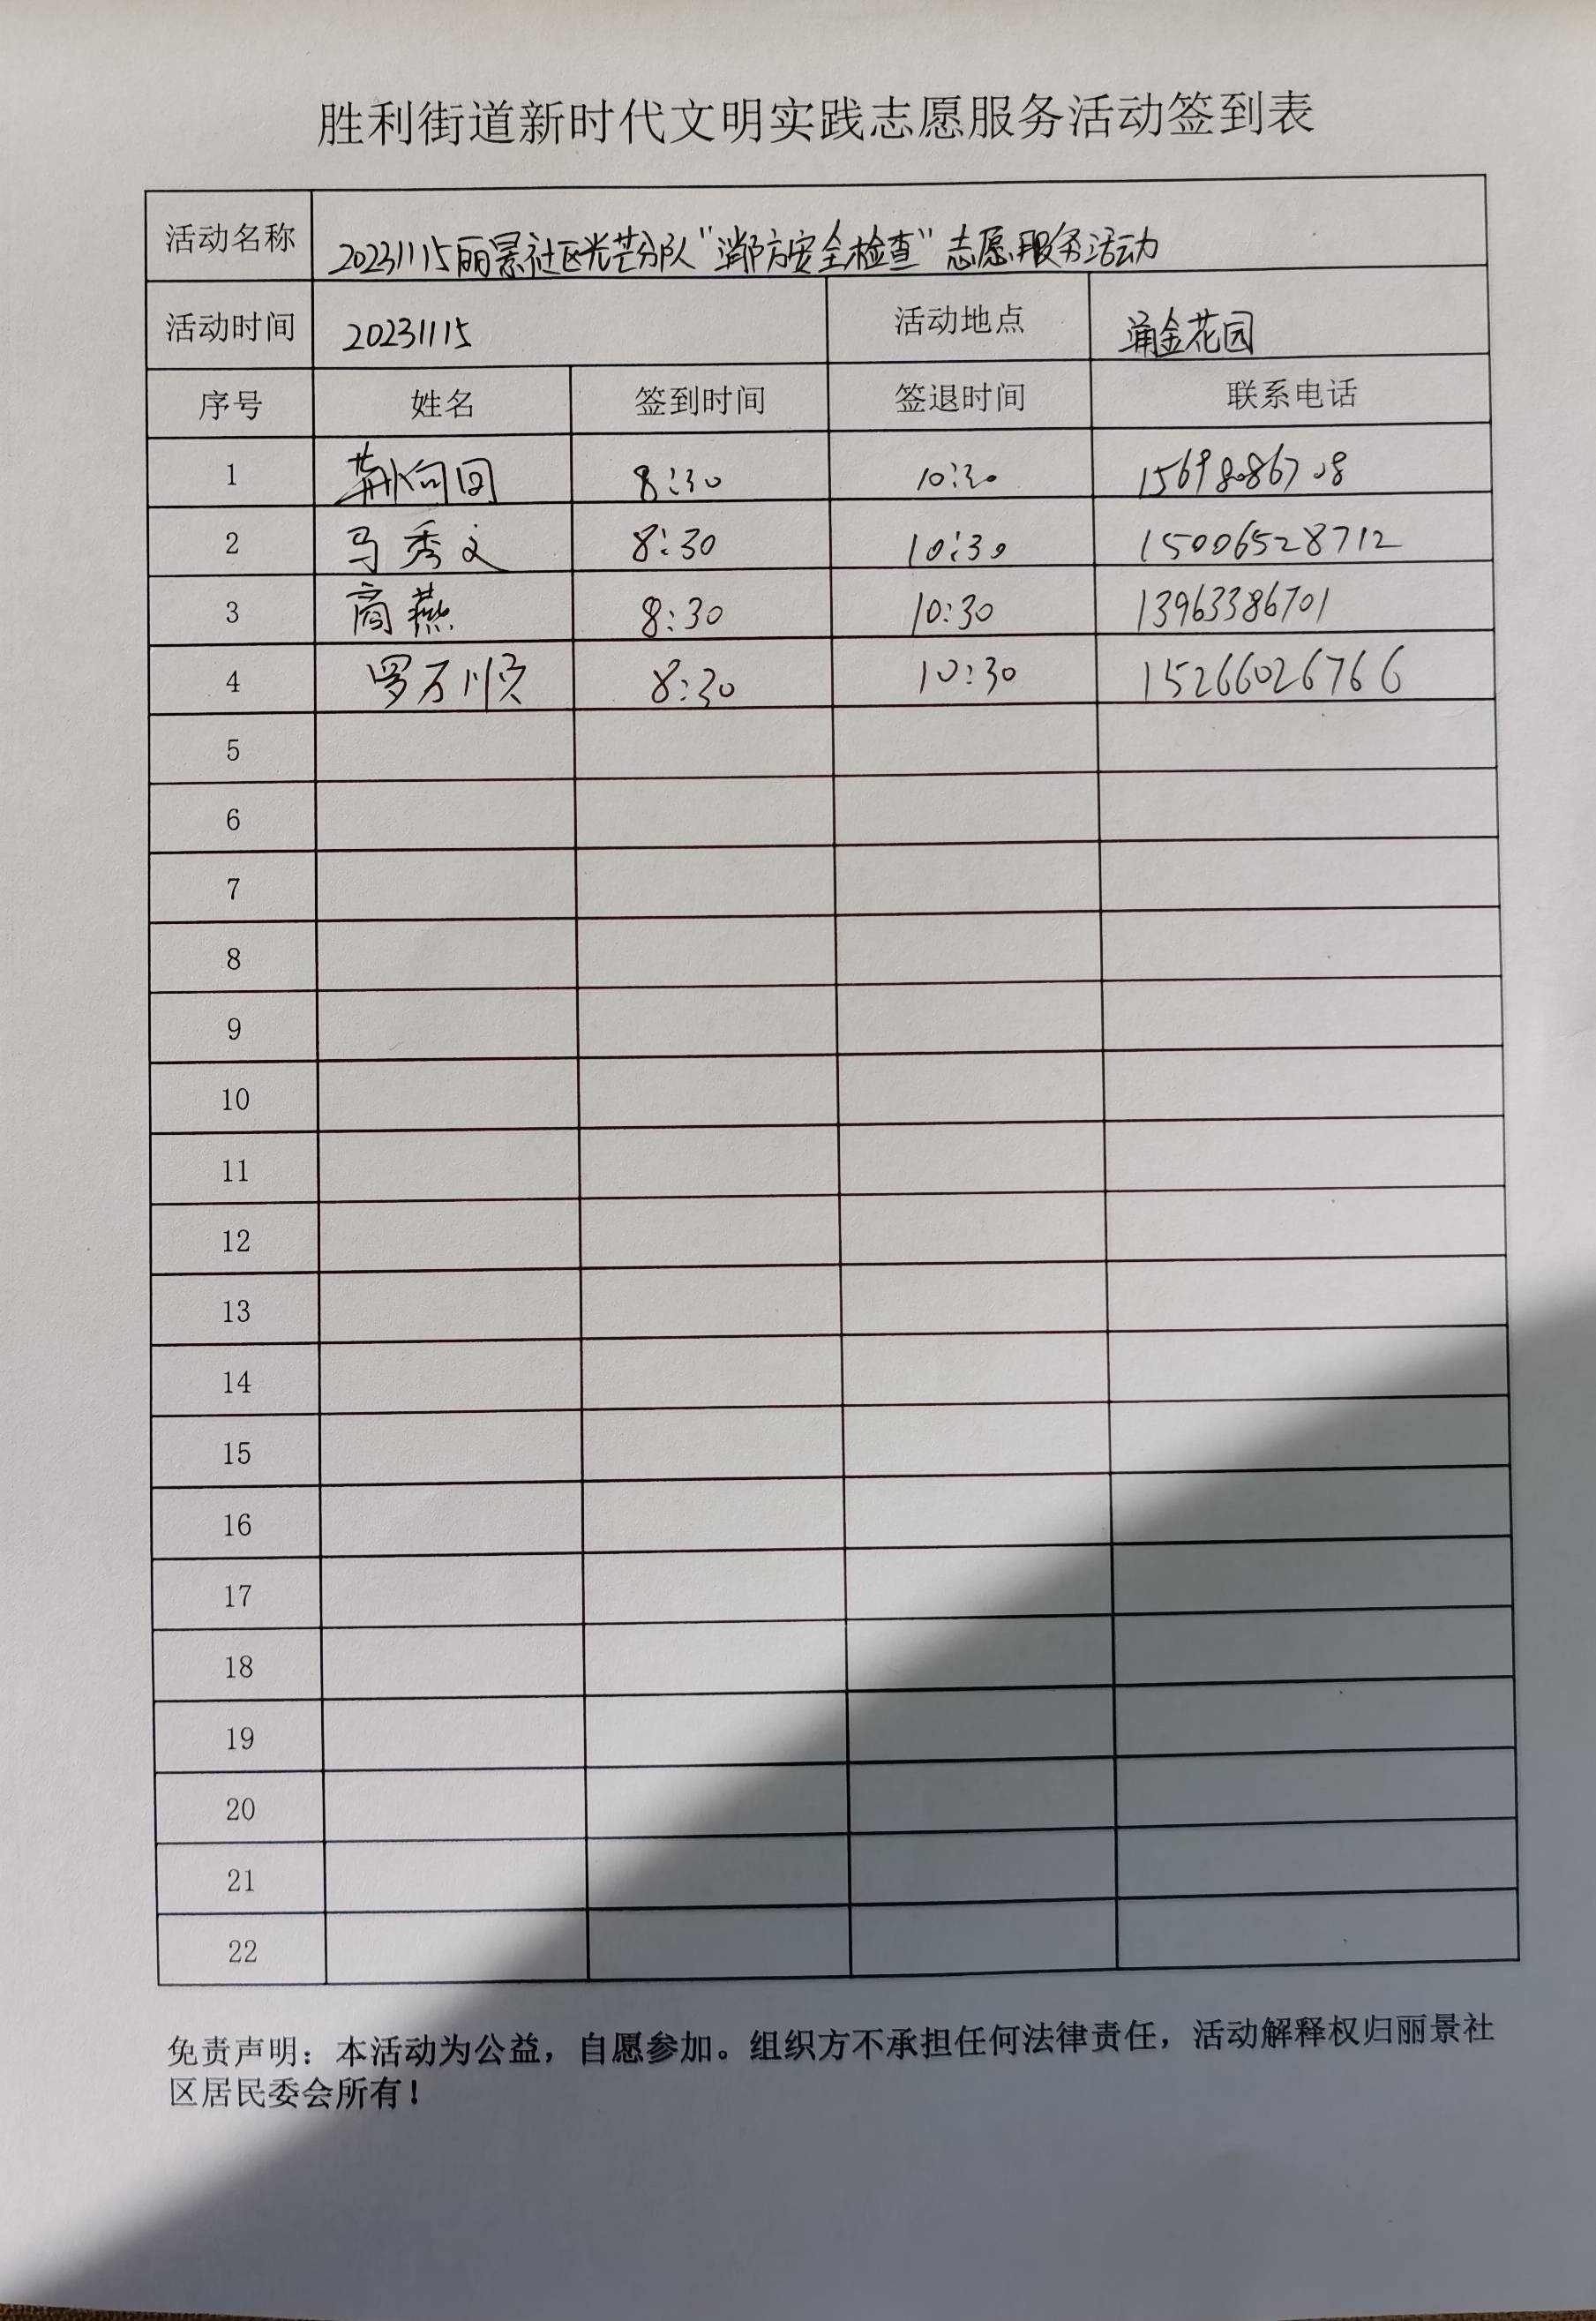 胜利街道新时代文明实践志愿服务活动签到表
活动名称 20231115丽景社区光芒分队“消防安全检查”志愿服务活动
活动时间 20231115 活动地点 涌金花园
序号 姓名 签到时间 签退时间 联系电话
1 荆向回 8:30 10:30
2 马秀文 8:30 10:30 15006528712
3 商燕 8:30 10:30 13963386701
4 罗万顺 8:30 10:30 15266026766
5
6
7
8
9
10
11
12
13
14
15
16
17
18
19
20
21
22
免责声明：本活动为公益，自愿参加。组织方不承担任何法律责任，活动解释权归丽景社
区居民委会所有！